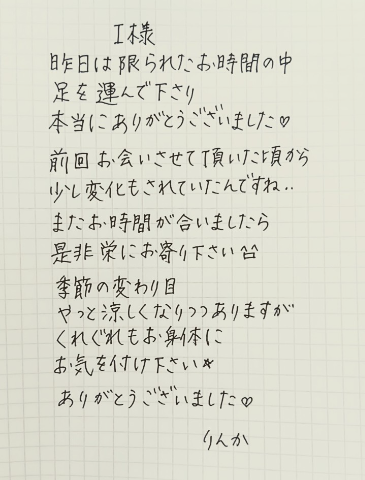 I様
昨日は限られたお時間の中
足を運んで下さり
本当にありがとうございました♡
前回お会いさせて頂いた頃から
少し変化もされていたんですね..
またお時間が合いましたら
是非栄にお寄り下さい^^
季節の変わり目
やっと涼しくなりつつありますが
くれぐれもお身体に
お気を付け下さい★
ありがとうございました♡
りんか